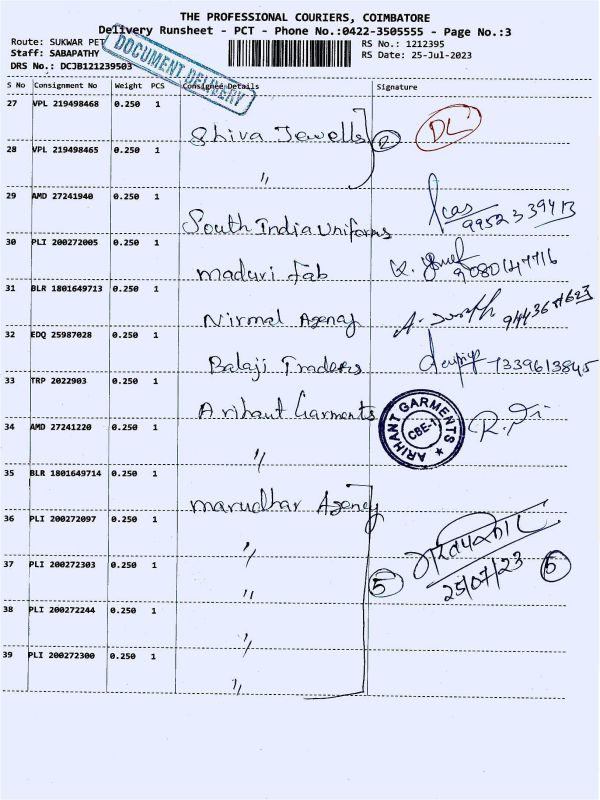 THE PROFESSIONAL COURIERS, COIMBATORE
Delivery Runsheet - PCT - Phone No.:0422-3505555 - Page No.:3
Route: SUKWAR PET
RS No.: 1212395
Staff: SABAPATHY
RS Date: 25-Jul-2023
DRS No.: DCJB121239503
DOCUMENT DELIVERY
S No Consignment No Weight PCS Consignee Details Signature
27 VPL 219498468 0.250 1
Shiva Jewells 2 DL
28 VPL 219498465 0.250 1
"
29 AMD 27241940 0.250 1
South India Uniforms
9952339413
30 PLI 200272005 0.250 1
Maduri Fab
9080147716
31 BLR 1801649713 0.250 1
Nirmal Agency
32 EDQ 25987028 0.250 1
Balaji Traders 7339613845
33 TRP 2022903 0.250 1
Arihant Garments
ARIHANT GARMENTS
CBE-1
34 AMD 27241220 0.250 1
"
35 BLR 1801649714 0.250 1
Marudhar Agency
36 PLI 200272097 0.250 1
"
37 PLI 200272303 0.250 1
" 5
25/07/23
38 PLI 200272244 0.250 1
"
39 PLI 200272300 0.250 1
"